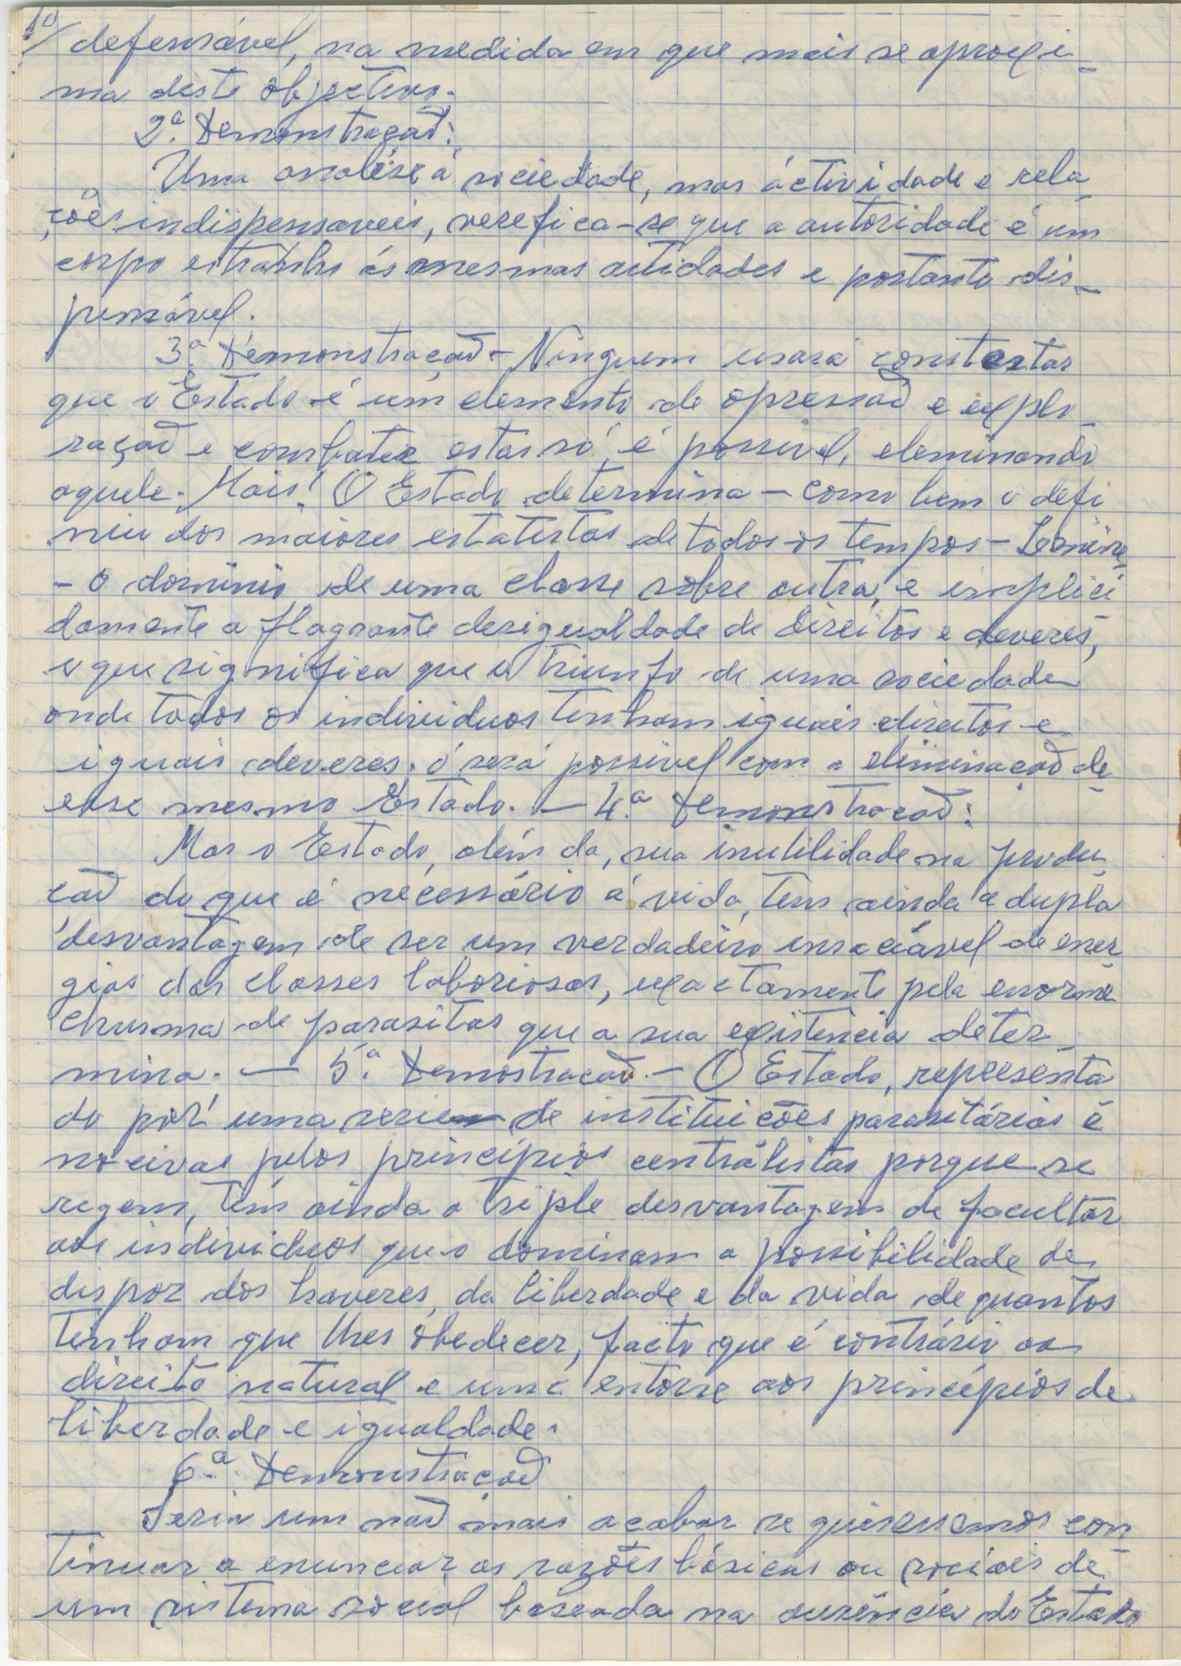 10/
defensável, na medida em que mais se aproxi-
ma deste objectivo.
2ª. Demonstração:
Uma análise á sociedade, mas áctividade e rela
ções indispensaveis, verefica-se que a autoridade é um
corpo estranho ás mesmas actidades e portanto dis-
pensável.
3ª. Demonstração - Ninguem usará constestar
que o Estado é um elemento de opressão e explo
ração e combater estas só é possivel, eleminando
aquele. Mais! O Estado determina - como bem o defi
niu dos maiores estatistas de todos os tempos - Lenine
- o dominio de uma classe sobre outra, e implici
damente a flagrante desigualdade de direitos e deveres,
o que significa que o triunfo de uma sociedade
onde todos os individuos tenham iguais direitos e
iguais deveres, ó será possivel com a eliminação de
esse mesmo Estado. - 4ª. Demonstração:
Mas o Estado, além da, sua inutilidade na produ
ção do que é necessário á vida, tem ainda a dupla
desvantagem de ser um verdadeiro insaciável de ener
gias das classes laboriosas, exactamente pela enorme
chusma de parasitas que a sua existência deter
mina. - 5ª. Demostração. - O Estado, representa
do por uma serie de instituições parasitárias é
nocivas pelos princípios centralistas porque se
regem, têm ainda a triple desvantagem de facultar
aos individuos que o dominam a possibilidade de
dispor dos haveres, da liberdade e da vida de quantos
tenham que lhes obedecer, facto que é contrário ao
direito natural e uma entorse aos princípios de
liberdade e igualdade.
6ª. Demonstração
Seria um não mais acabar se quisessemos con
tinuar a enunciar as razões básicas ou sociais de
um sistema social baseada na ausência do Estado